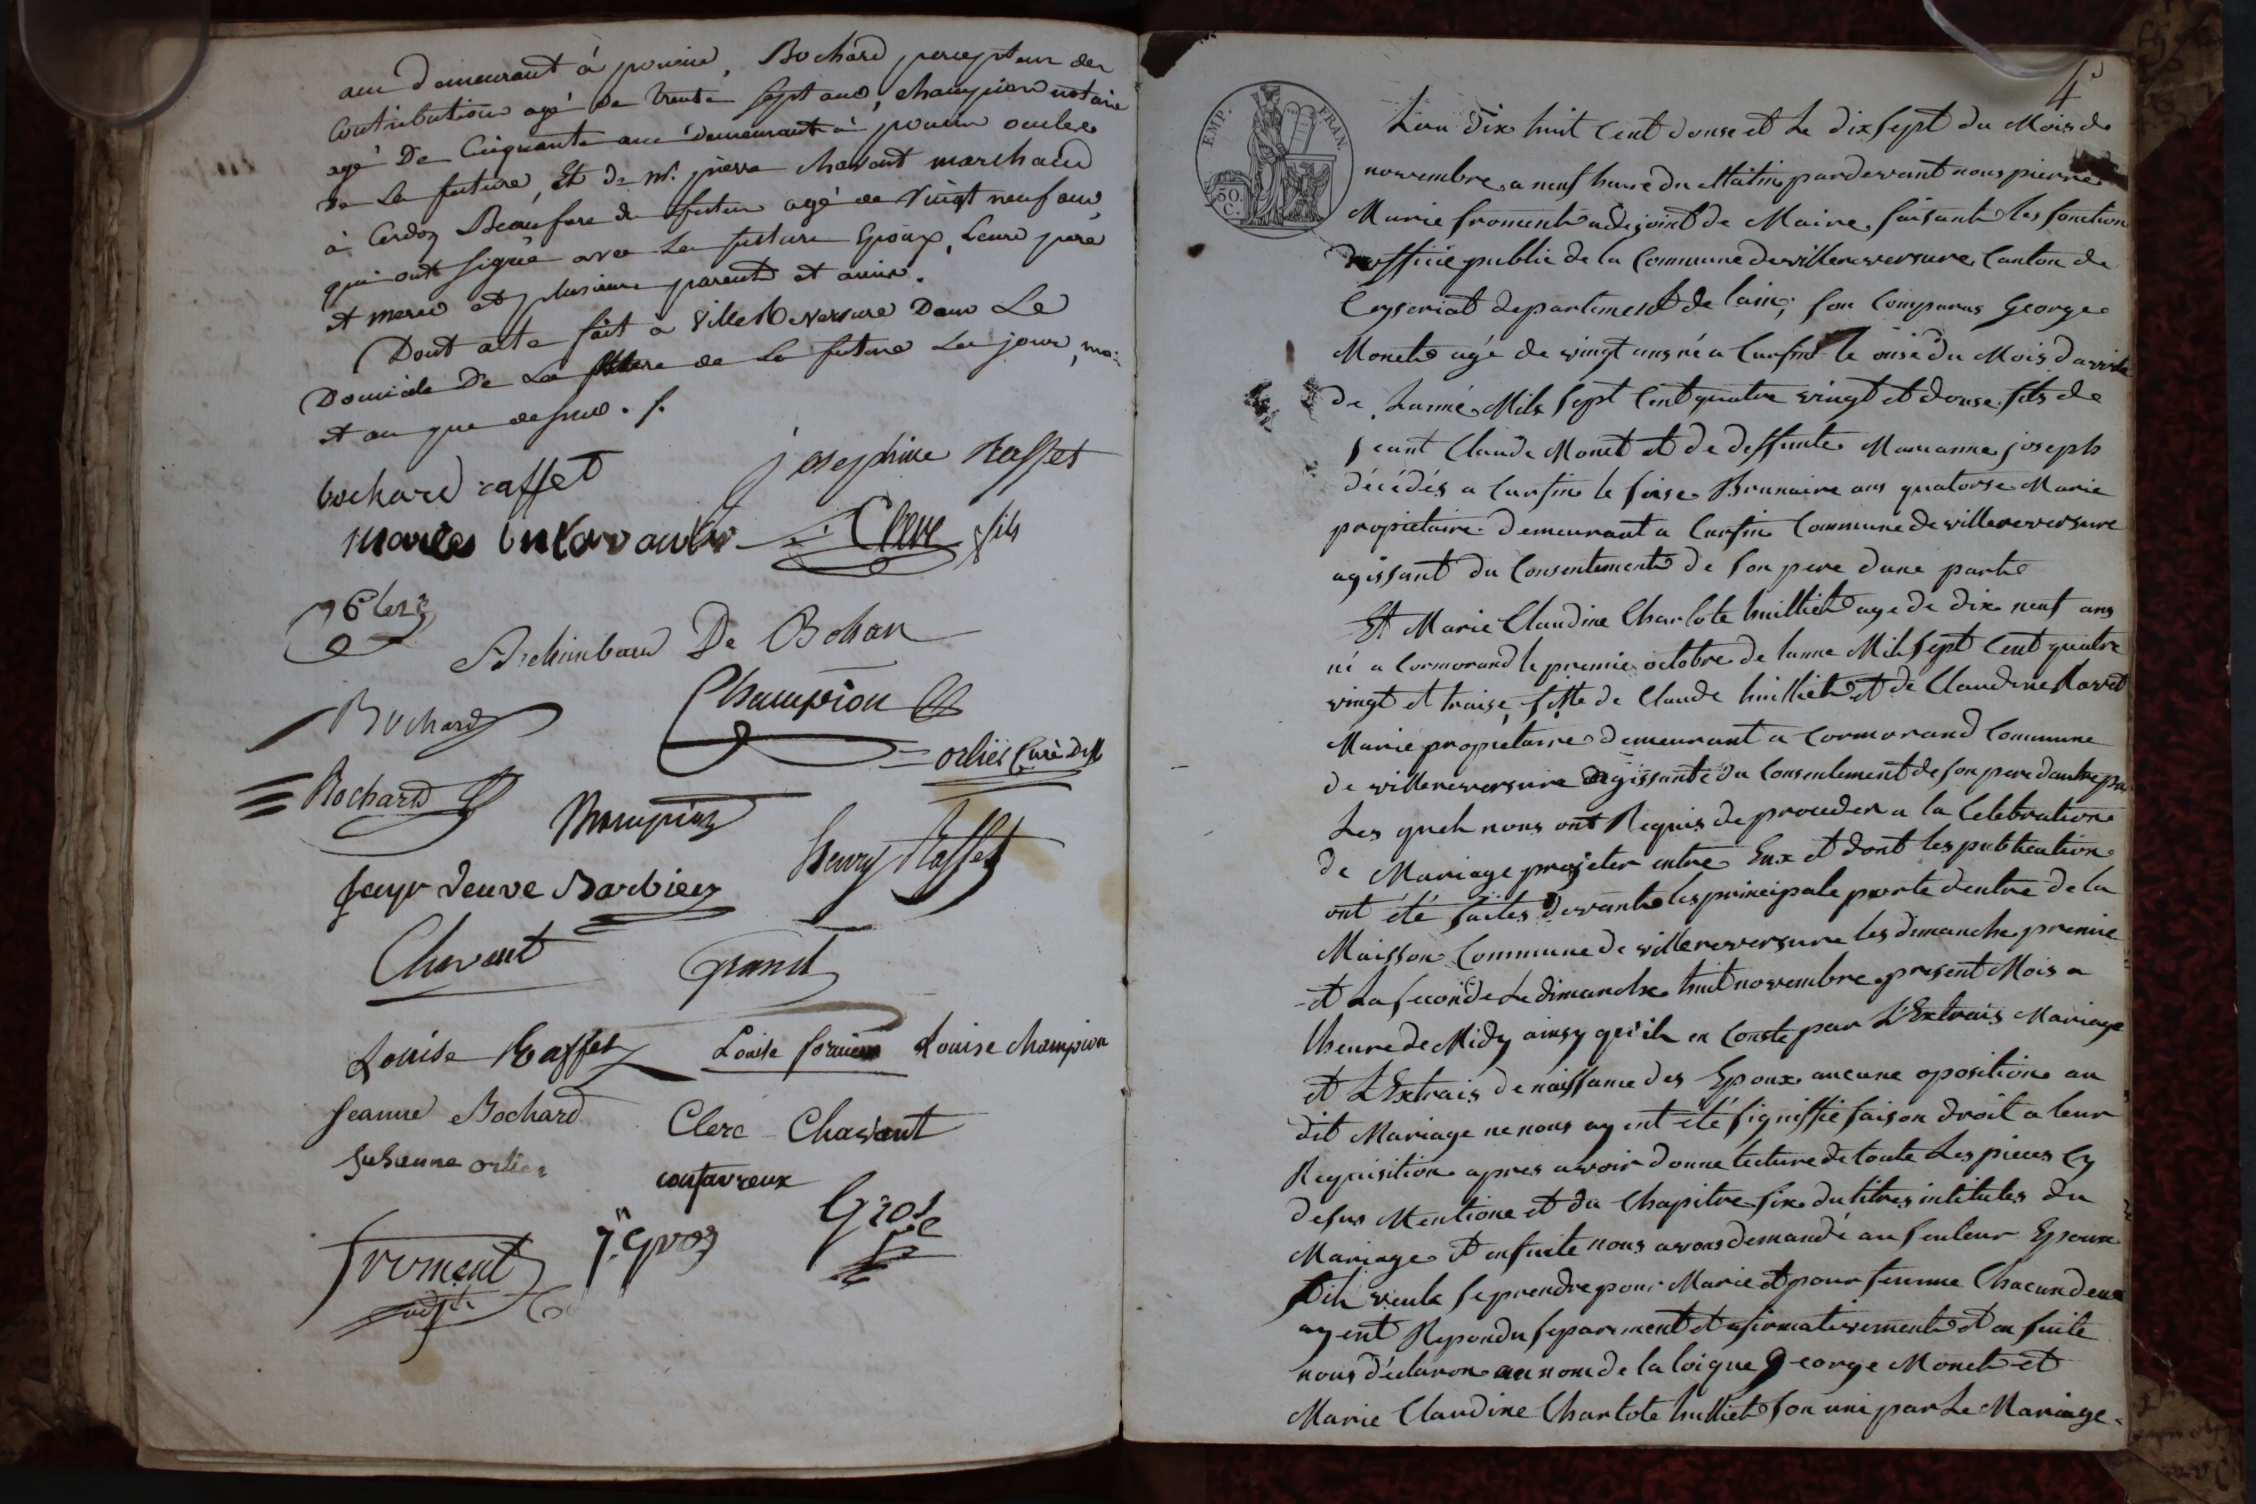 ans demeurant à poncin, Bochard percepteur des
Contributions agé de trente sept ans, champion notaire
agé De Cinquante ans demeurant à poncin oncles
de La future, Et de mr. pierre chavant marchand
à Cerdon Beaufrere du futur agé de vingt neuf ans,
qui ont signé avec Les futurs Epoux, Leurs pere
et mere et plusieurs parents et amis.
Dont acte fait à Villereversure Dans Le
Domicile De La mere de La future Les jour, moi
et an que dessus ./.
bochard raffet
josephine Raffet
Clerc fils
Clerc
Archimbaud De Bohan
Bochard
Champion
orlier Curé
Bochard
Champion
henry Raffet
veuve Barbier
Chavent
Grand
Louise Raffet
Louise
Louise champion
Jeanne Bochard
Clerc Chavant
Susanne orlier
confavreux
froment
adjt
Gros
Gros
4
EMP. FRAN.
50 C.
Lan dix huit Cent douse et Le dix sept du Mois de
novembre a neuf heure du Matin pardevant nous pierre
Marie froment adejoint de Maire faisant les fonction
dofficie public de la Commune de villereversure Canton de
Ceyseriat departement de lain, son Comparus George
Monet agé de vingt ans né a Cursin le onse du Mois davrile
de Lanné Mile sept Cent quatre vingt et douse fils de
jeant Claude Monet et de deffunte Marianne joseph
décédés a Cursin le seise Brumaire ans quatorse Marie
propietaire demeurant a Cursin Commune de villereversure
agissant du Consentement de son pere dune parte
Et Marie Claudine Charlote huilliet age de dix neuf ans
né a Cormorand le premie octobre de lanne Mile sept Cent quatre
vingt et traise, fille de Claude huilliet et de Claudine Ravet
Marie propietaire demeurant a Cormorand Commune
de villereversure agissante du Consentement de son pere dautre par
Les quels nous ont Requis de proceder a la Celebration
de Mariage projeter entre Eux et dont les publication
ont été faites devant les principale porte dentre de la
Maisson Commune de villereversure les dimanche premie
et La seconde Le dimanche huit novembre present Mois a
lheure de Midy ainsy qu'ils en Conste par L'Extrais Mariage
et L'Extrais de naissance des Epoux aucune oposition au
dit Mariage ne nous ayent été signiffié faison droit a leur
Requisition apres avoir donne lecture de toute Les pieces Cy
desus Mentione et du Chapitre six du titres intitules du
Mariage Et ensuite nous avons demandé au Epoux
sils veule se prendre pour Marie et pour femme Chacun deux
ayent Repondu separement et afirmativement et en suite
nous déclaron au nom de la loi que George Monet et
Marie Claudine Charlote hulliet son uni par Le Mariage.